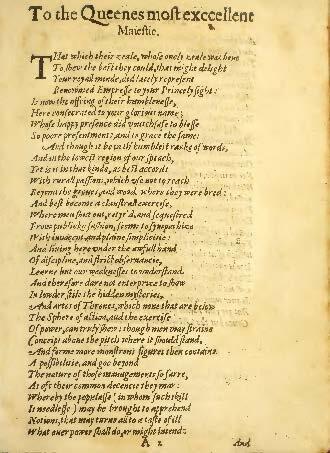 To the Queenes most exccellent
Maiestie.
THat which their zeale, whose onely zeale was bent
To shew the best they could, that might delight
Your royall minde, did lately represent
Renowned Empresse to your Princely sight:
Is now the offring of their humblenesse,
Here consecrated to your glorious name;
Whose happy presence did vouchsafe to blesse
So poore presentments, and to grace the same:
And though it be in th' humblest ranke of words,
And in the lowest region of our speach,
Yet is it in that kinde, as best accords
With rurall passions, which use not to reach
Beyond the groves, and woods, where they were bred:
And best become a claustrall exercise,
Where men shut out, retyr'd, and sequestred
From publike fashion, seeme to sympathize
With innocent, and plaine simplicitie:
And living here under the awfull hand
Of discipline, and strict observancie,
Learne but our weakenesses to understand.
And therefore dare not enterprize to show
In lowder stile the hidden mysteries,
And arts of Thrones, which none that are below
The Sphere of action, and the exercise
Of power, can truely shew: though men may straine
Conceipt above the pitch where it should stand,
And forme more monstrous figures then containe
A possibilitie, and goe beyond
The nature of those managements so farre,
As oft their common decencie they marre:
Whereby the populasse (in whom such skill
Is needlesse) may be brought to apprehend
Notions, that may turne all to a taste of ill
What ever power shall do, or might intend:
A 2
And